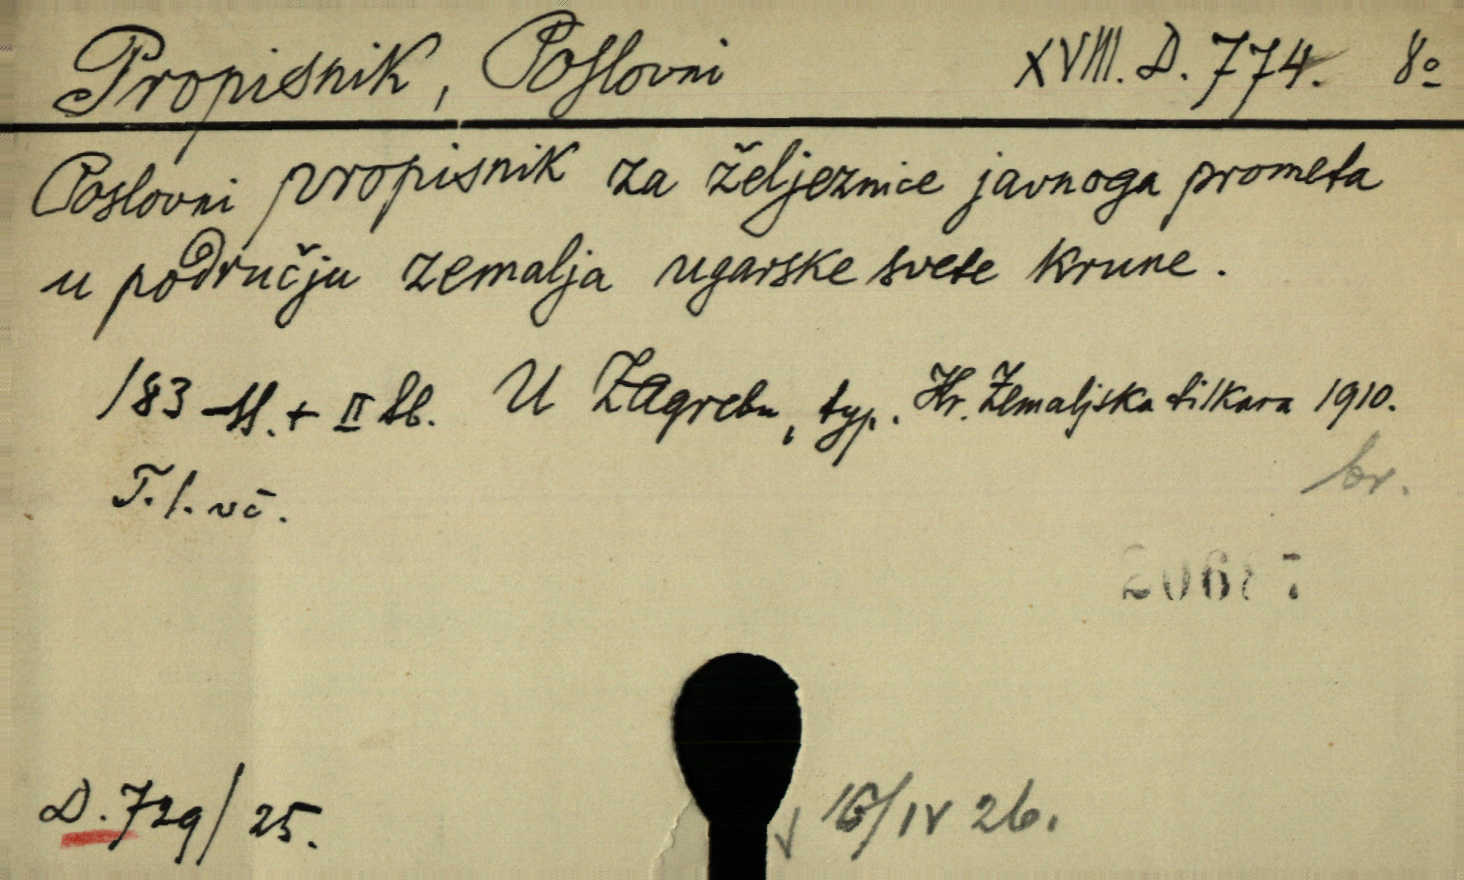 Propisnik, Poslovni XVIII. D. 774. 8º
Poslovni propisnik za željeznice javnoga prometa
u području zemalja ugarske svete krune.
183 + II U Zagrebu, typ. Hr. Zemaljska tiskara 1910.
br.
T. l. vč.
D. 729/25.
16/IV 26.